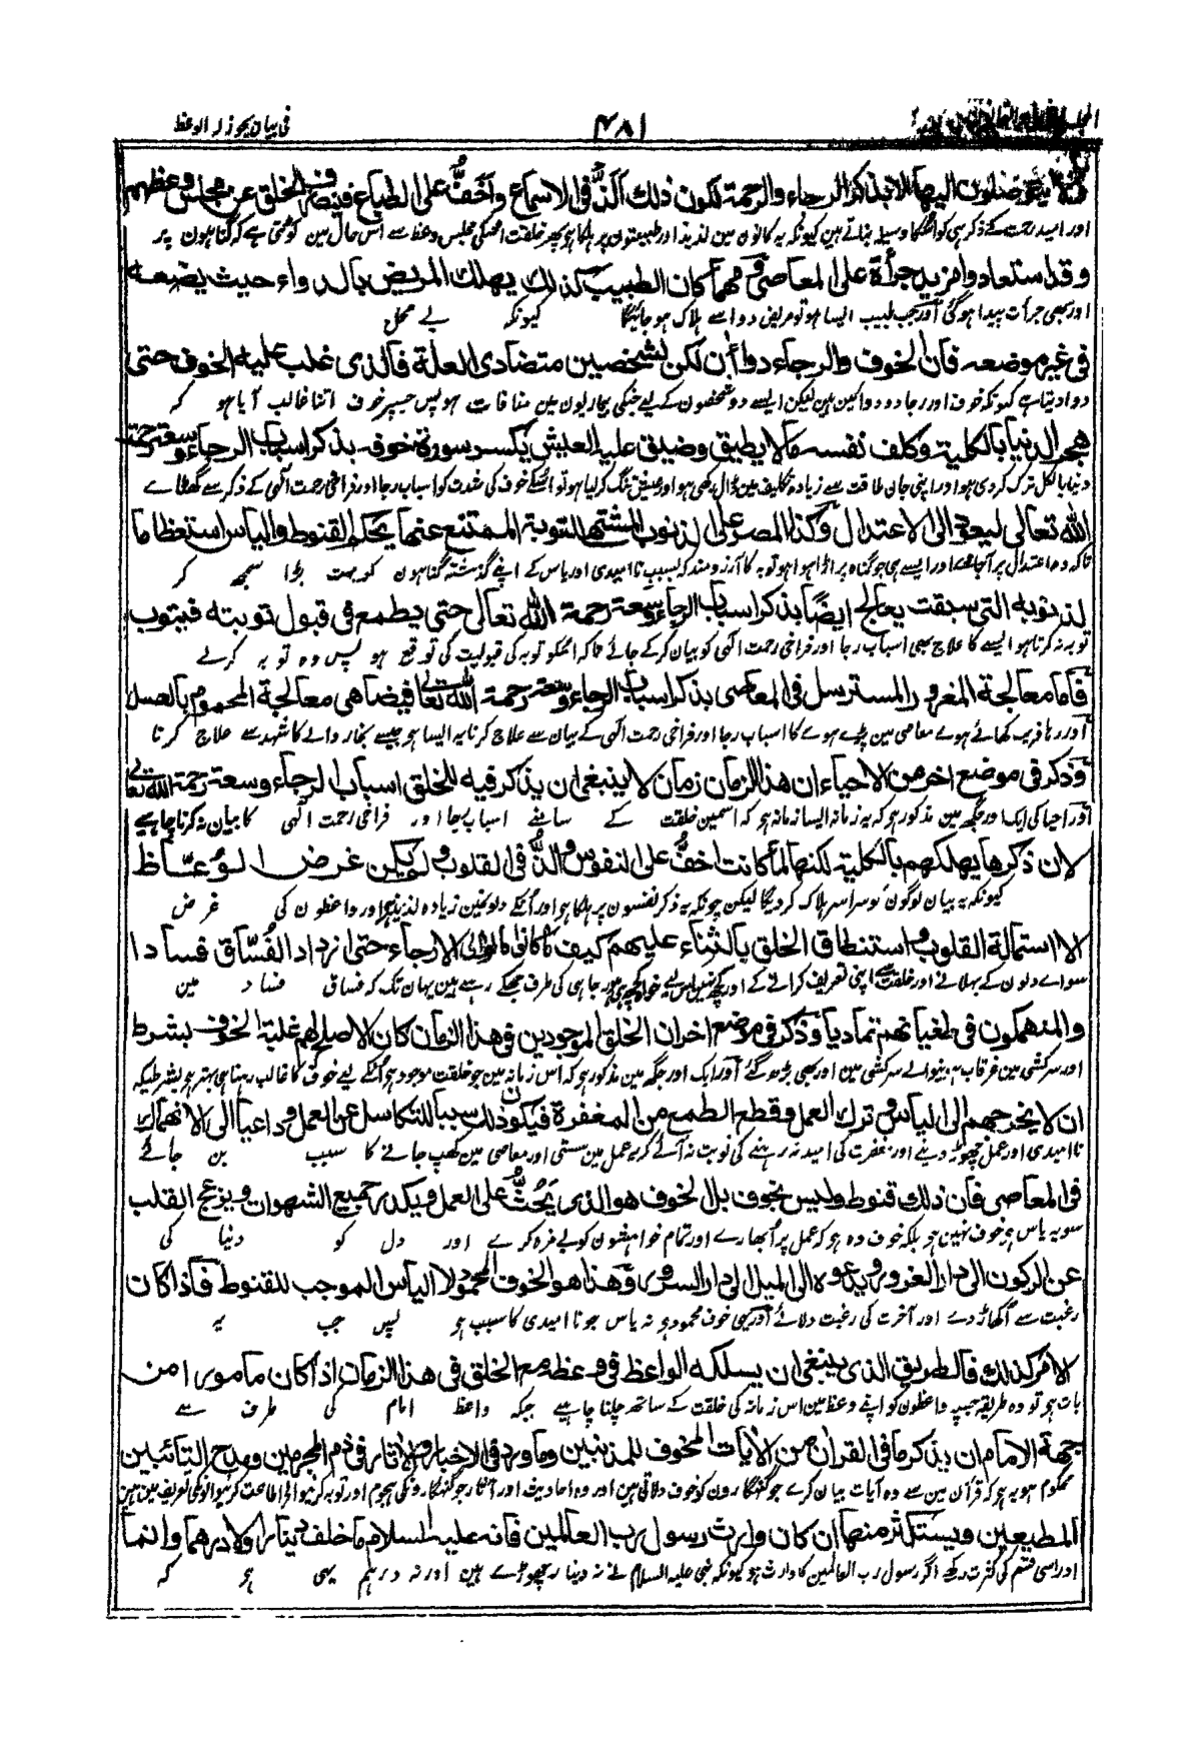 فی بیان یجوز لہ الوعظ
۴۸۱
الا بذكر الرجاء والرحمة لكون ذلك ألذّ فی الاسماع وأخفّ علی الطباع فینصرف الخلق عن مجلس وعظهم
اور امید رحمت کے ذکر ہی کو اسکا وسیلہ بناتے ہین کیونکہ یہ کانون مین لذیذ اور طبیعتون پر ہلکا ہو پھر خلقت انکی مجلس وعظ سے اس حال مین لوٹتی ہے کہ گناہون پر
وقد استعادوا مزید جرأة علی المعاصی ومهما كان الطبیب كذلك یهلك المریض بالدواء حیث یضعه
اور بھی جرأت پیدا ہوگئی اور جب طبیب ایسا ہو تو مریض دوا سے ہلاک ہو جائیگا کیونکہ بے محل
فی غیر موضعه فان الخوف والرجاء دواأن لكن لشخصین متضادی العلة فالذی غلب علیه الخوف حتی
دوا دیتا ہے کیونکہ خوف اور رجا دو دوائین ہین لیکن ایسے دو شخصون کے لیے جنکی بیماریون مین منافات ہو پس جسپر خوف اتنا غالب آیا ہو کہ
هجر الدنیا بالكلیة وكلف نفسه مالا یطیق وضیق علیه العیش یكسر سورة خوفه بذكر اسباب الرجاء وسعة رحمة
دنیا بالکل ترک کردی ہو اور اپنی جان طاقت سے زیادہ تکلیف مین ڈال رکھی ہو اور عیش تنگ کرلیا ہو تو اسکے خوف کی شدت کو اسباب رجا اور فراخی رحمت الٰہی کے ذکر سے گھٹا دے
الله تعالی لیعود الی الاعتدال وكذا المصر علی الذنوب المشتهی للتوبة الممتنع عنها بحكم القنوط والیاس استعظاما
تاکہ وہ اعتدال پر آجائے اور ایسے ہی جو گناہ پر اڑا ہوا ہو توبہ کا آرزومند کہ بسبب ناامیدی اور یاس کے اپنے گذشتہ گناہون کو بہت بڑا سمجھ کر
لذنوبه التی سبقت یعالج ایضًا بذكر اسباب الرجاء وسعة رحمة الله تعالی حتی یطمع فی قبول توبته فیتوب
توبہ نہ کرتا ہو ایسے کا علاج بھی اسباب رجا اور فراخی رحمت الٰہی کو بیان کرکے جائے تاکہ اسکو توبہ کی قبولیت کی توقع ہو پس وہ توبہ کرلے
فاما معالجة المغرور المسترسل فی المعاصی بذكر اسباب الرجاء وسعة رحمة الله تعالی فیضاهی معالجة المحموم بالعسل
اور رہا فریب کھائے ہوے معاصی مین پڑے ہوے کا اسباب رجا اور فراخی رحمت الٰہی کے بیان سے علاج کرنا یہ ایسا ہو جیسے بخار والے کا شہد سے علاج کرنا
وذكر فی موضع اخر من الاحیاء ان هذا الزمان زمان لا ینبغی ان یذكر فیه للخلق اسباب الرجاء وسعة رحمة الله تعالی
اور احیا کی ایک اور جگہ مین مذکور ہو کہ یہ زمانہ ایسا زمانہ ہو کہ اسمین خلقت کے سامنے اسباب رجا اور فراخی رحمت الٰہی کا بیان نہ کرنا چاہیے
لان ذكرها یهلكهم بالكلیة لكنها لما كانت اخف علی النفوس وألذّ فی القلوب ولم یكن غرض الوُعّاظ
کیونکہ یہ بیان لوگون کو سراسر ہلاک کردیگا لیکن چونکہ یہ ذکر نفسون پر ہلکا ہو اور انکے دلونمین زیادہ لذیذ ہو اور واعظون کی غرض
الا استمالة القلوب واستنطاق الخلق بالثناء علیهم كیف ما كانوا مالوا الی الارجاء حتی ازداد الفسّاق فسادا
سواے دلون کے بہلانے اور خلقت سے اپنی تعریف کرانے کے اور کچھ نہین اس لیے خواہ کچھ ہی ہو رجا ہی کی طرف جھکے رہے ہین یہان تک کہ فساق فساد مین
والمنهمكون فی طغیانهم تمادیا وذكر فی موضع اخر ان الخلق الموجودین فی هذا الزمان كان الاصلح لهم غلبة الخوف بشرط
اور سرکشی مین غرقاب ہونیوالے سرکشی مین اور بھی بڑھ گئے اور ایک اور جگہ مین مذکور ہو کہ اس زمانہ مین جو خلقت موجود ہو انکے لیے خوف کا غالب رہنا ہی بہتر ہو بشرطیکہ
ان لا یخرجهم الی الیاس وترك العمل وقطع الطمع من المغفرة فیكون ذلك سببا للتكاسل عن العمل وداعیا الی الانهماك
ناامیدی اور عمل چھوڑ دینے اور مغفرت کی امید نہ رہنے کی نوبت نہ آئے کہ یہ عمل مین سستی اور معاصی مین کھپ جانے کا سبب بن جائے
فی المعاصی فان ذلك قنوط ولیس بخوف بل الخوف هو الذی یحُثّ علی العمل ویكدر جمیع الشهوات ویزعج القلب
سو یہ یاس ہو خوف نہین ہو بلکہ خوف وہ ہو کہ عمل پر اُبھارے اور تمام خواہشون کو بے مزہ کرے اور دل کو دنیا کی
عن الركون الی دار الغرور ویدعوه الی المیل الی دار السرور وهذا هو الخوف المحمود لا الیاس الموجب للقنوط فاذا كان
رغبت سے اُکھاڑ دے اور آخرت کی رغبت دلائے اور یہی خوف محمود ہو نہ یاس جو ناامیدی کا سبب ہو پس جب یہ
الامر كذلك فالطریق الذی ینبغی ان یسلكه الواعظ فی وعظه مع الخلق فی هذا الزمان اذا كان مامورا من
بات ہو تو وہ طریقہ جسپر واعظون کو اپنے وعظ مین اس زمانہ کی خلقت کے ساتھ چلنا چاہیے جبکہ واعظ امام کی طرف سے
جهة الامام ان یذكر ما فی القران من الأیات المخوف للمذنبین وما ورد فی الاخبار والاثار فی ذم المجرمین ومدح التائبین
محکوم ہو یہ ہو کہ قرآن مین سے وہ آیات بیان کرے جو گنہگارون کو خوف دلاتی ہین اور وہ احادیث اور آثار جو گنہگارونکی ہجو مین اور توبہ کرنیوالو اور اطاعت کرنیوالونکی تعریف مین ہین
المطیعین ویستكثر منها ان كان وارث رسول رب العالمین فانه علیه السلام ما خلف دینارا ولا درهما وانما
اور اسی قسم کی کثرت رکھے اگر رسول رب العالمین کا وارث ہو کیونکہ نبی علیہ السلام نے نہ دینار چھوڑے ہین اور نہ درہم یہی ہو کہ